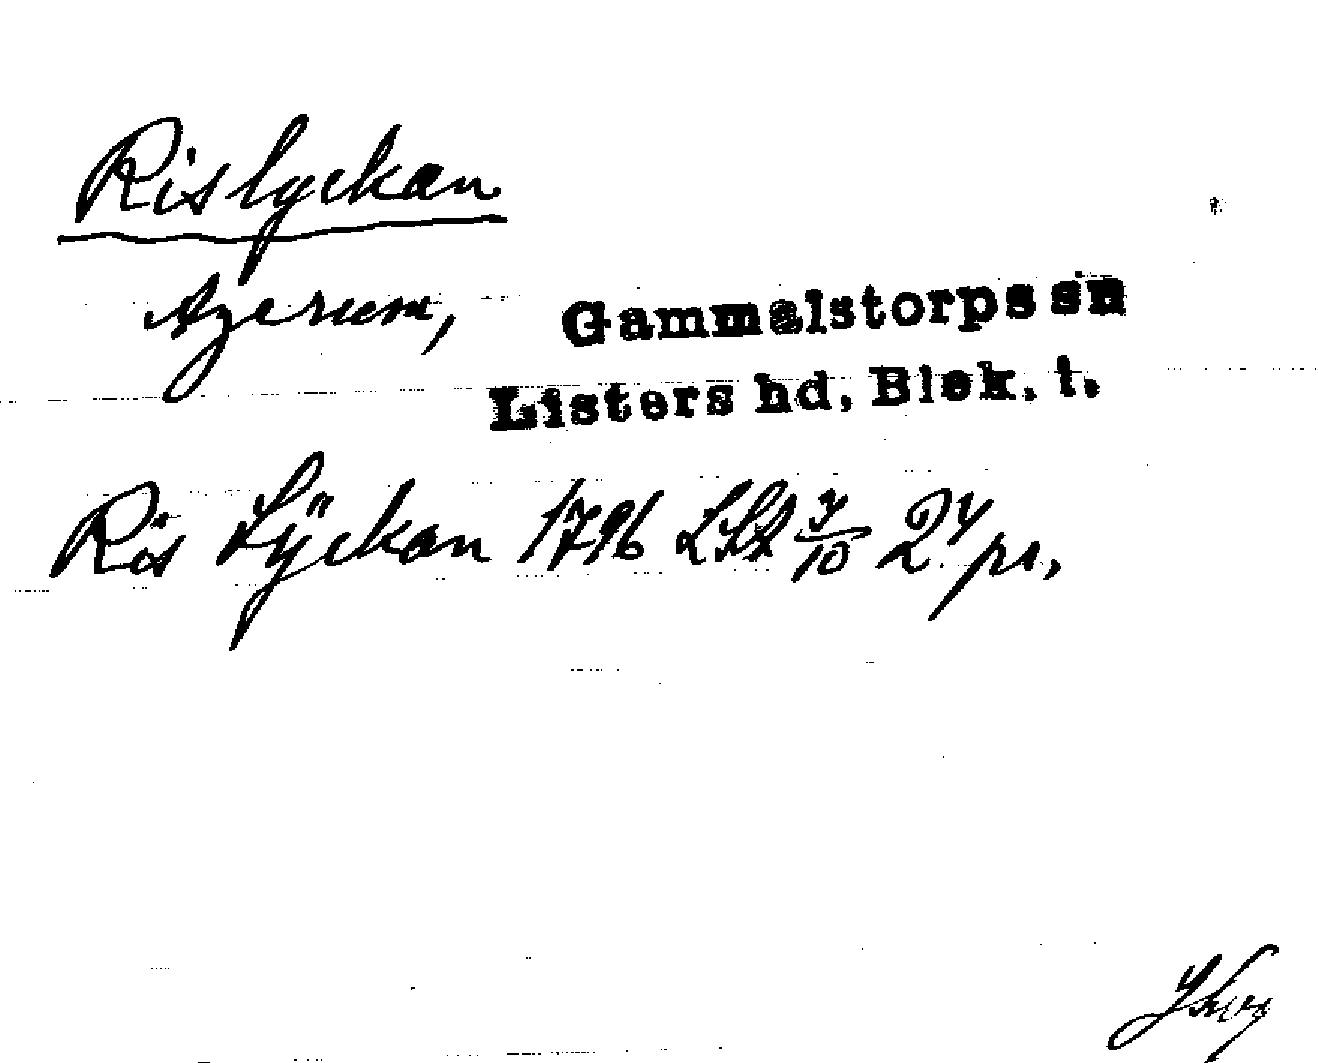 Rislyckan
Agerum, Gammalstorps sn
Listers hd, Blek. l.
Ris Lÿckan 1796 LSA 3/10 24 pr.